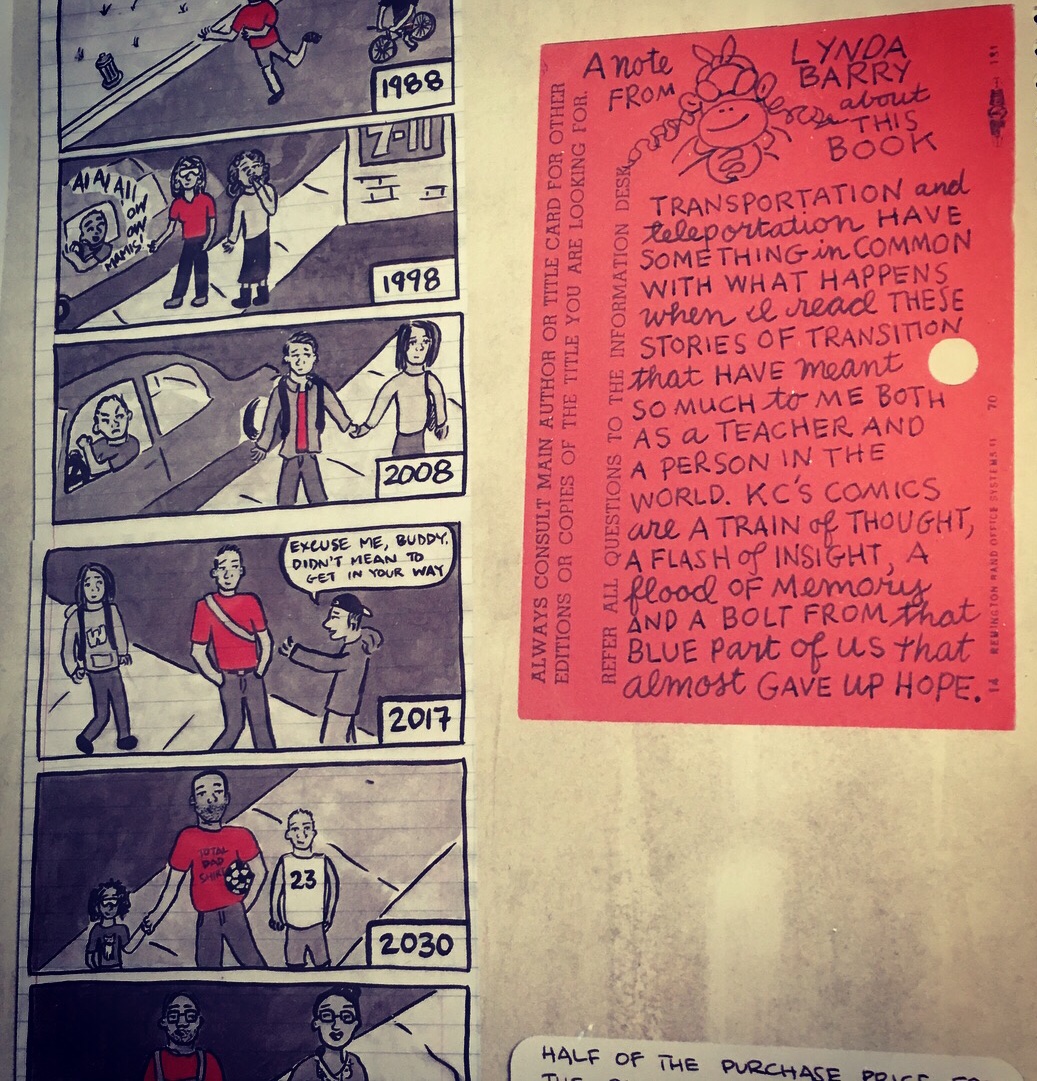 1988
AI AI AI!
OW
OW
MAMIS!
7-11
1998
2008
EXCUSE ME, BUDDY.
DIDN'T MEAN TO
GET IN YOUR WAY
2017
TOTAL
DAD
SHIRT
23
2030
A note
FROM
LYNDA
BARRY
about
THIS
BOOK
TRANSPORTATION and
teleportation HAVE
SOMETHING in COMMON
WITH WHAT HAPPENS
when I read THESE
STORIES OF TRANSITION
that HAVE meant
SO MUCH to ME BOTH
AS a TEACHER AND
A PERSON IN THE
WORLD. KC'S COMICS
are A TRAIN of THOUGHT,
A FLASH of INSIGHT, A
flood OF Memory
AND A BOLT FROM that
BLUE Part of US that
almost GAVE UP HOPE.
ALWAYS CONSULT MAIN AUTHOR OR TITLE CARD FOR OTHER
EDITIONS OR COPIES OF THE TITLE YOU ARE LOOKING FOR.
REFER ALL QUESTIONS TO THE INFORMATION DESK
14 REMINGTON RAND OFFICE SYSTEMS 70 151
HALF OF THE PURCHASE PRICE TO